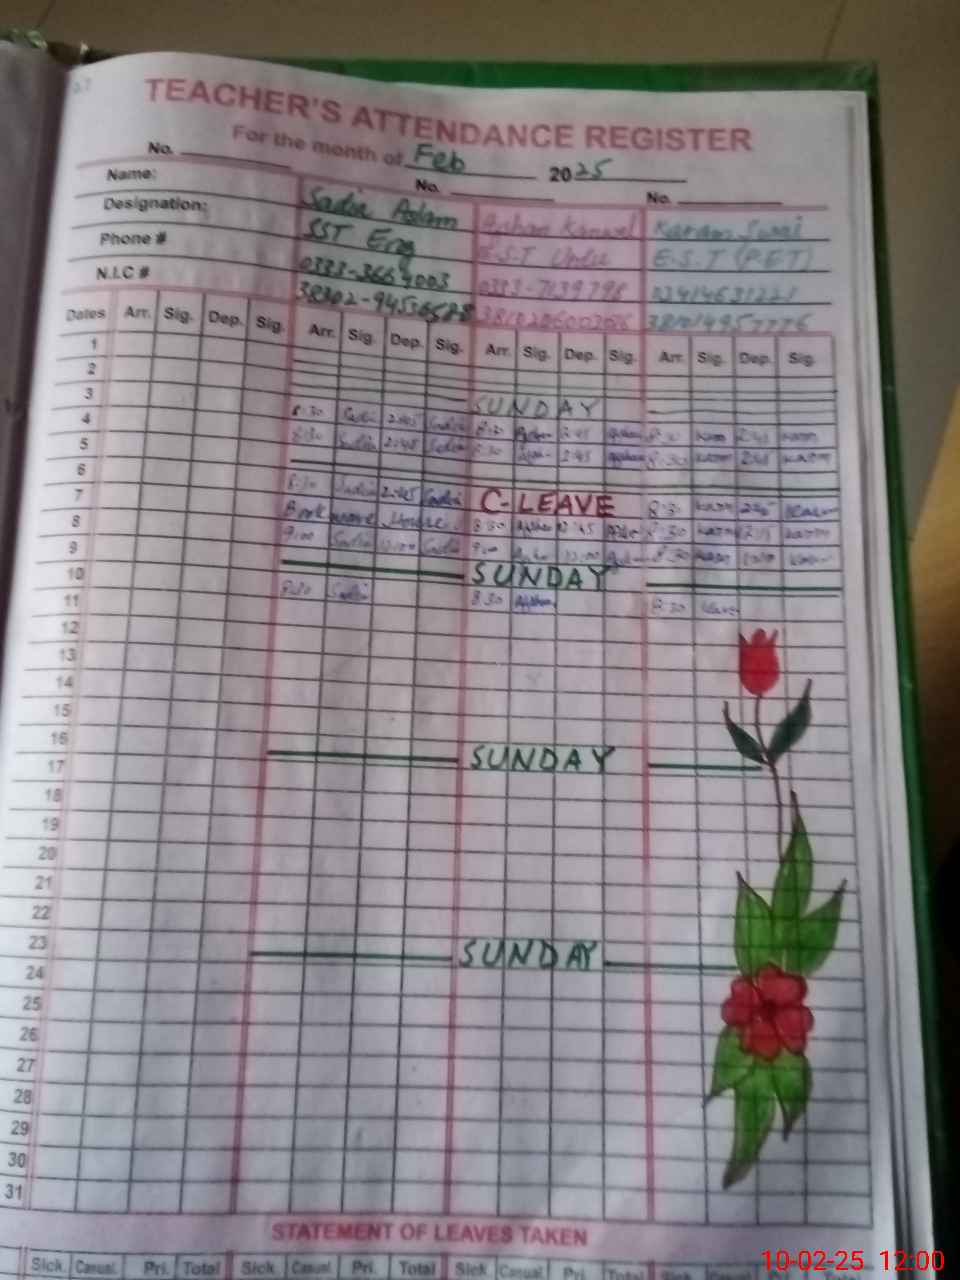 TEACHER'S ATTENDANCE REGISTER
For the month of Feb 2025
No. No. No.
Name: Sadia Aslam Afshan Kanwal Karam
Designation: SST Eng E.S.T Urdu E.S.T (P.E.T)
Phone # 0333-3664003 0333-7139798 03414631221
N.I.C #
Dates Arr. Sig. Dep. Sig. Arr. Sig. Dep. Sig. Arr. Sig. Dep. Sig. Arr. Sig. Dep. Sig.
1
2
3 SUNDAY
4 8:30 Sadia 2:45 Sadia 8:30 Afshan 2:45 Afshan 8:30 Karam 2:45 Karam
5 8:30 Sadia 2:45 Sadia 8:30 2:45 Afshan 8:30 Karam 2:45 Karam
6
7 8:30 Sadia 2:45 Sadia C-LEAVE 8:30 Karam 2:45 Karam
8 8:30 Afshan 2:45 8:30 Karam Karam
9 9:00 Sadia 12:00 Sadia 9:00 12:00 8:30 Karam
10 SUNDAY
11 8:30 Sadia 8:30 Afshan 8:30
12
13
14
15
16
17 SUNDAY
18
19
20
21
22
23
24 SUNDAY
25
26
27
28
29
30
31
STATEMENT OF LEAVES TAKEN
Sick Casual Pri. Total Sick Casual Pri. Total Sick Casual Pri. Total Sick
10-02-25 12:00